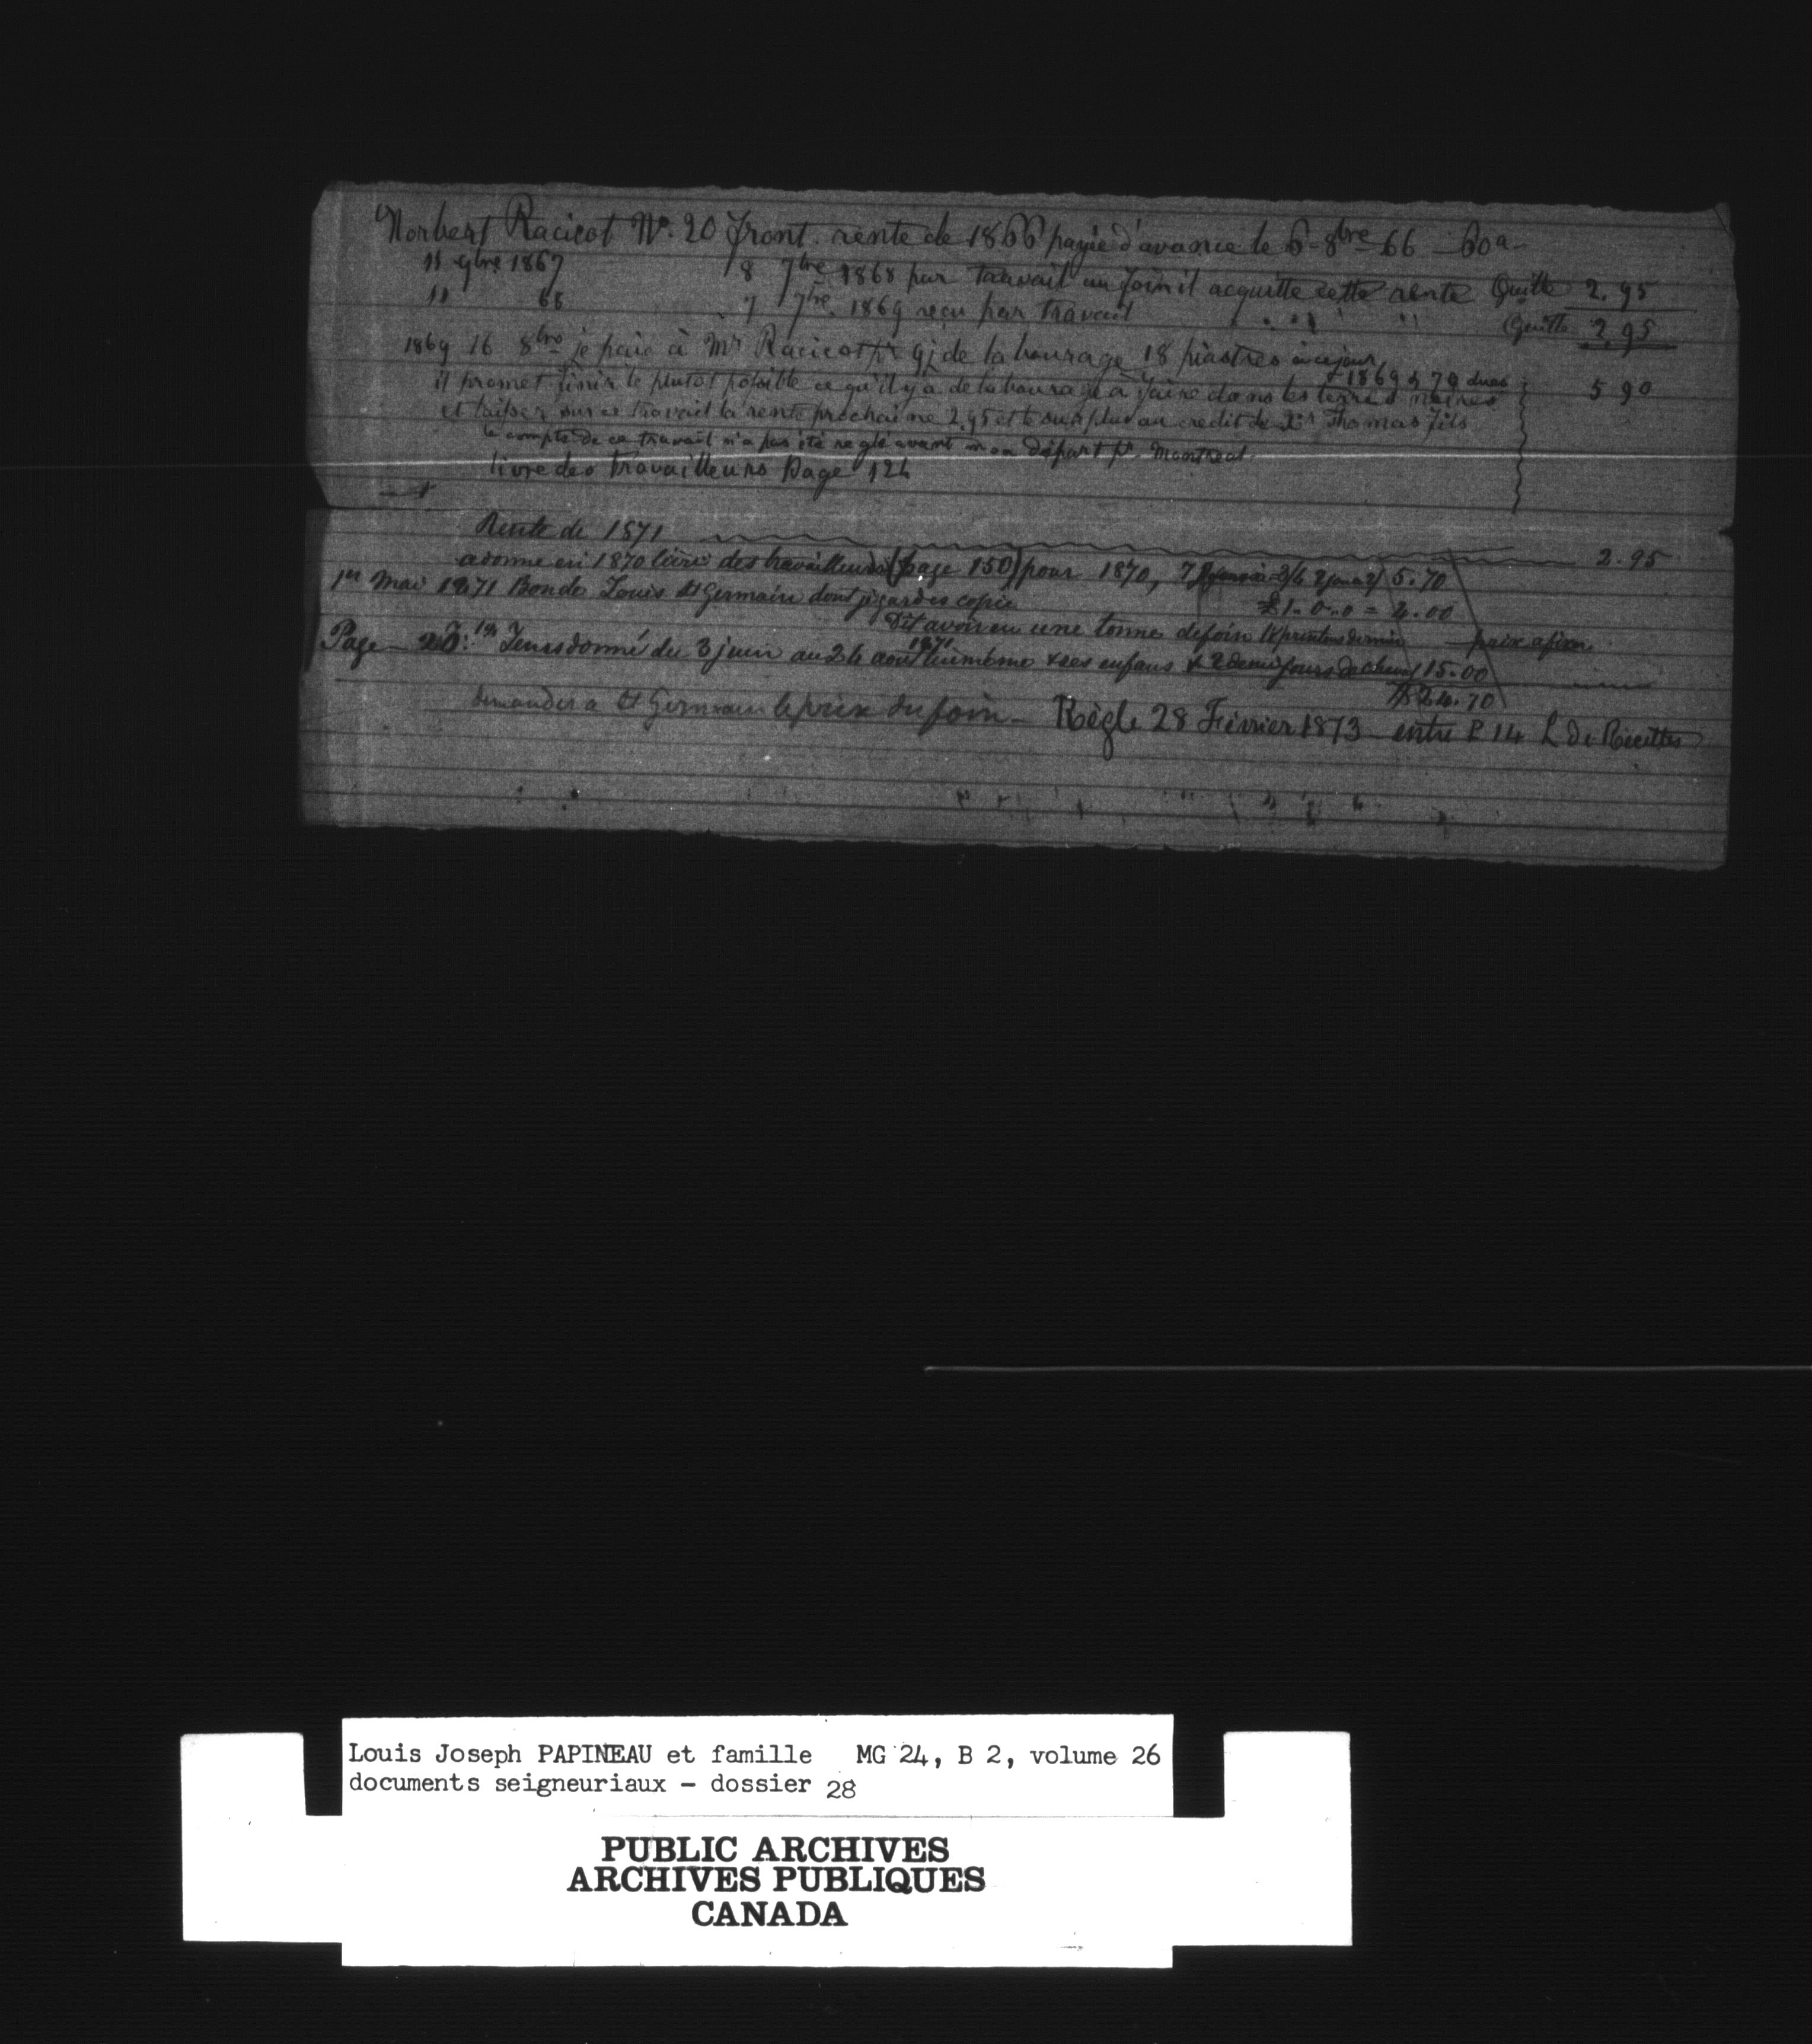 Norbert Racicot No. 20 front. rente de 1866 payée d'avance le 6 - 8bre 66 - 60a -
11 9bre 1867 8 7bre 1868 par travail au foin il acquitte cette rente Quitte 2.95
11 68 7 7bre 1869 reçu par travail " " Quitte 2.95
1869 16 8bre je paie à Mr Racicot pr 9j de labourage 18 piastres à ce jour
1869 & 70 dues 5 90
il promet finir le plutot possible ce qu'il y a de labourage à faire dans les terres noires
et laisser sur ce travail la rente prochaine 2,95 et le surplus au credit de Thomas fils
le compte de ce travail n'a pas été reglé avant mon départ pr Montreal
livre des travailleurs Page 124
Rente de 1871 2.95
a donné en 1870 livre des travailleurs (page 150) pour 1870, 7 5.70
1er Mai 1871 Bon de Louis St Germain dont je garde copie £1.0.0 = 4.00
Dit avoir eu une tonne de foin le printems dernier prix a fixer
Page 20: Jours donné du 3 juin au 24 aout 1871 lui même & ses enfans & 2 demi jours de cheval 15.00
$24.70
demander a St Germain le prix du foin - Réglé 28 Février 1873 entré P 14 L de Recettes
Louis Joseph PAPINEAU et famille MG 24, B 2, volume 26
documents seigneuriaux - dossier 28
PUBLIC ARCHIVES
ARCHIVES PUBLIQUES
CANADA